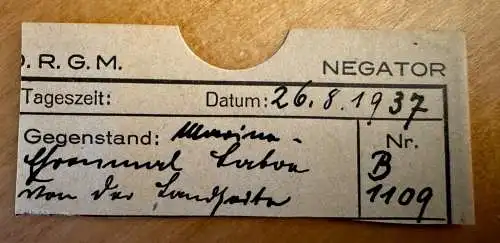 D. R. G. M. NEGATOR
Tageszeit: Datum: 26.8.1937
Gegenstand: Marine- Nr.
Ehrenmal Laboe B
von der Landseite 1109